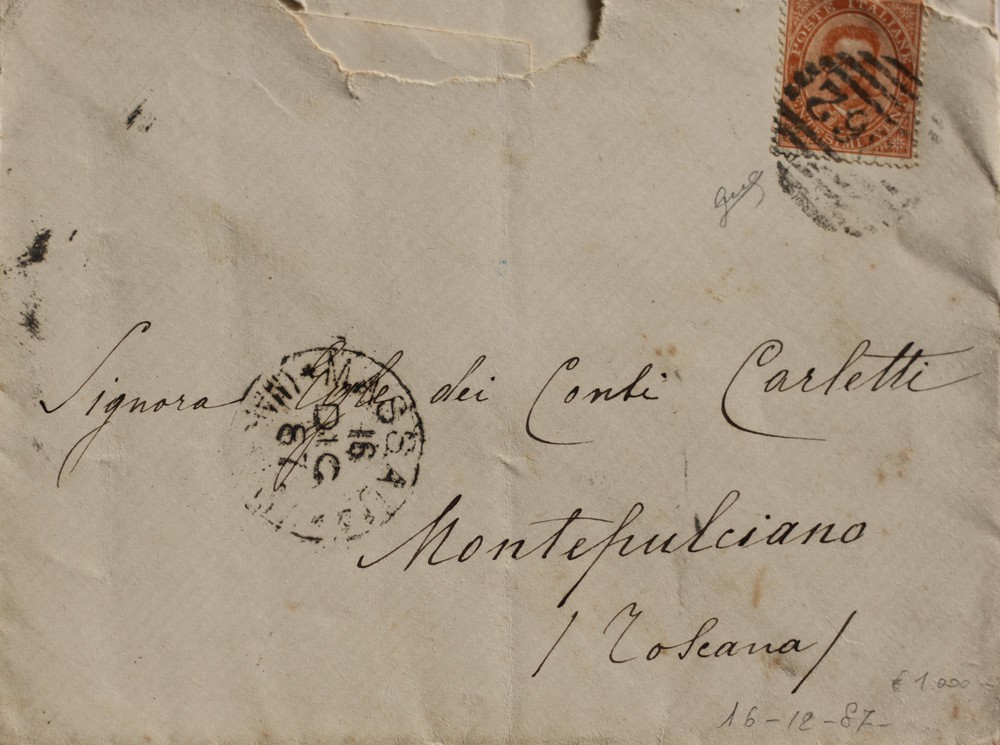 POSTE ITALIANE
Signora dei Conti Carletti
MASSA
16
DIC
87
Montepulciano
/Toscana/
€ 1.000-
16-12-87-